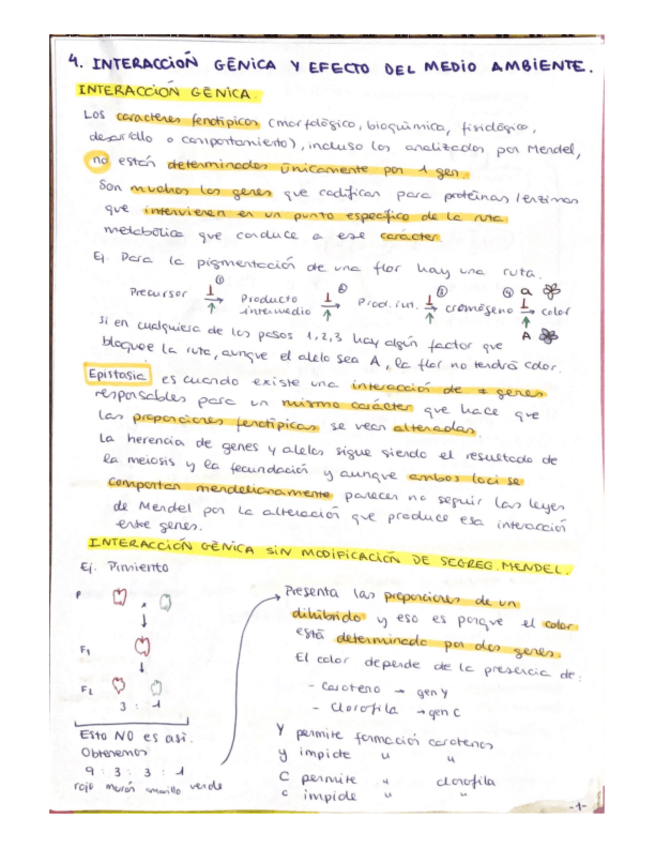 4. INTERACCIÓN GÉNICA Y EFECTO DEL MEDIO AMBIENTE.
INTERACCIÓN GÉNICA.
Los caracteres fenotípicos (morfológico, bioquímico, fisiológico,
desarrollo o comportamiento), incluso los analizados por Mendel,
no están determinados únicamente por 1 gen.
Son muchos los genes que codifican para proteínas/enzimas
que intervienen en un punto específico de la ruta
metabólica que conduce a ese carácter.
Ej. Para la pigmentación de una flor hay una ruta.
Precursor ① Producto intermedio ② Prod. int. ③ cromógeno ④ a A color
Si en cualquiera de los pasos 1,2,3 hay algún factor que
bloquee la ruta, aunque el alelo sea A, la flor no tendrá color.
Epistasia es cuando existe una interacción de ≠ genes
responsables para un mismo carácter que hace que
las proporciones fenotípicas se vean alteradas.
La herencia de genes y alelos sigue siendo el resultado de
la meiosis y la fecundación y aunque ambos loci se
comportan mendelianamente parecen no seguir las leyes
de Mendel por la alteración que produce esa interacción
entre genes.
INTERACCIÓN GÉNICA SIN MODIFICACIÓN DE SEGREG. MENDEL.
Ej. Pimiento
P x
F1
F2
3 : 1
Esto NO es así.
Obtenemos
9 : 3 : 3 : 1
rojo marrón amarillo verde
Presenta las proporciones de un
dihíbrido y eso es porque el color
está determinado por dos genes.
El color depende de la presencia de:
- Caroteno → gen Y
- Clorofila → gen C
Y permite formación carotenos
y impide " "
C permite " clorofila
c impide " "
-1-